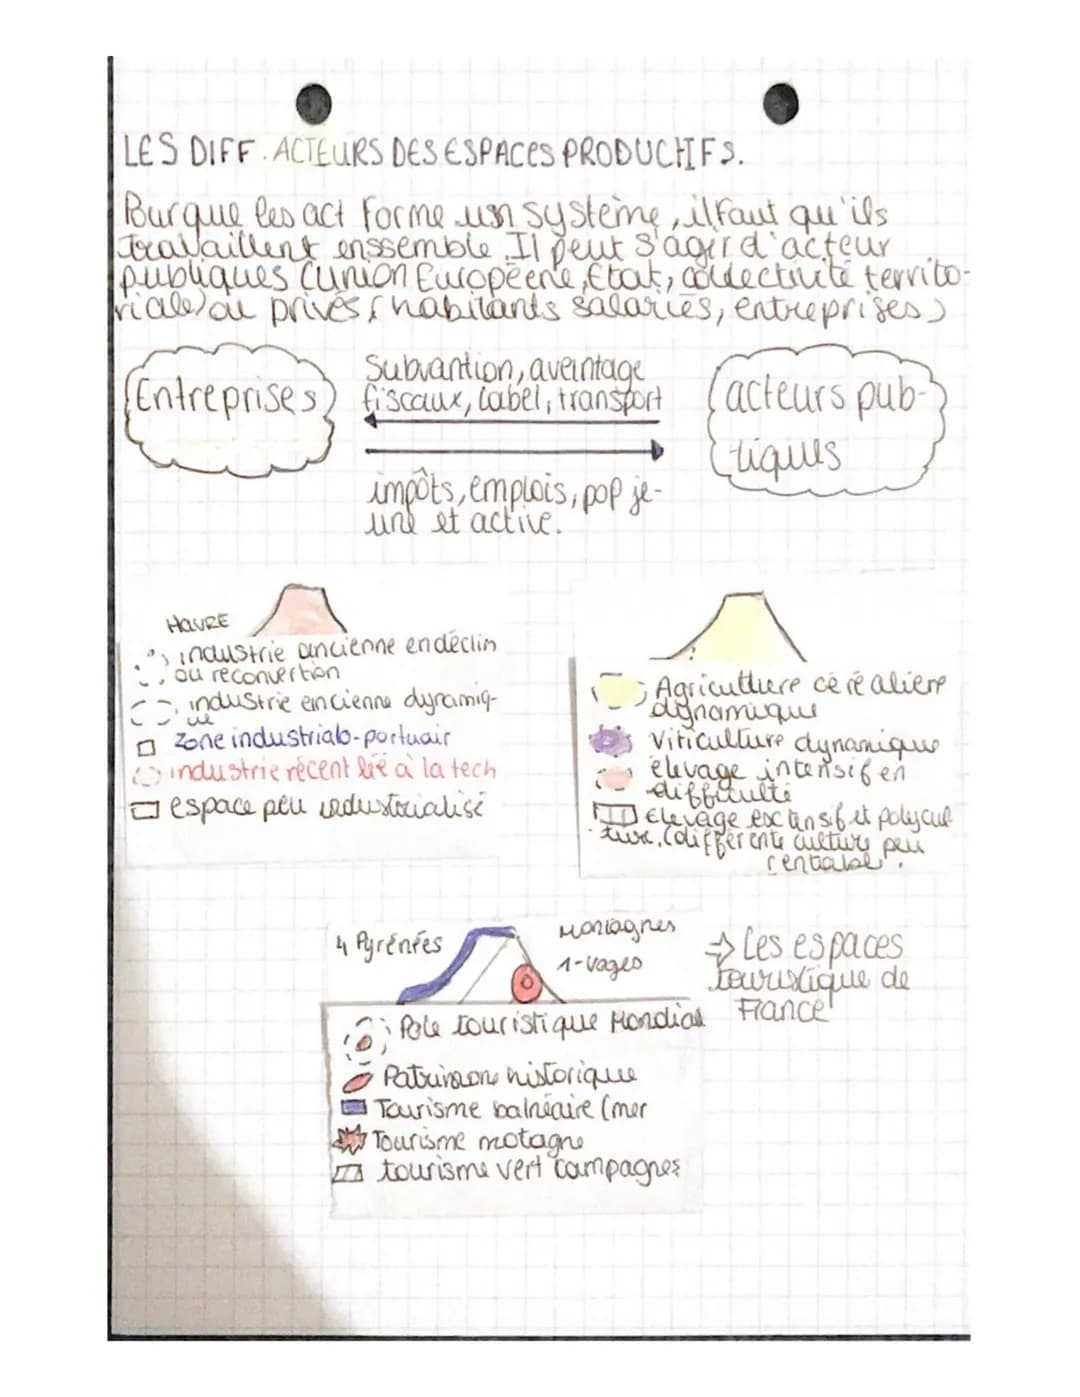 LES DIFF. ACTEURS DES ESPACES PRODUCTIFS.
Pour que les act forme un système, il faut qu'ils
travaillent enssemble Il peut s'agir d'acteur
publiques (union Européene, Etat, collectivité territo-
riale) ou privés (habitants salariés, entreprises)
Entreprises
Subvantion, aveintage
fiscaux, label, transport
acteurs pub-
liques
impôts, emplois, pop je-
une et active.
HAVRE
industrie ancienne en déclin
ou reconvertion
industrie encienne dynamiq-
ue
zone industrialo-portuair
industrie récent lié à la tech
espace peu industrialisé
Agriculture céréaliere
dynamique
Viticulture dynamique
élevage intensif en
difficulté
Elevage extensif et polycul
ture, (différente culture peu
rentable.
4 Pyrénées
Montagnes
1-vages
→ Les espaces
touristique de
France
Pole touristique Mondial
Patrimone historique
Tourisme balnéaire (mer
Tourisme motagne
tourisme vert campagnes